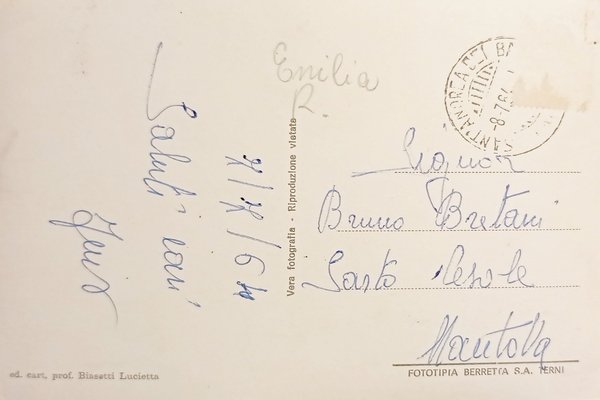 Emilia
R.
SANT'ANDREA DEL BA
-8-7.64
Saluti cari
7/7/64
Vera fotografia - Riproduzione vietata
Signor
Bruno Bretani
Mantova
ed. cart. prof. Biasetti Lucietta
FOTOTIPIA BERRETTA S.A. TERNI